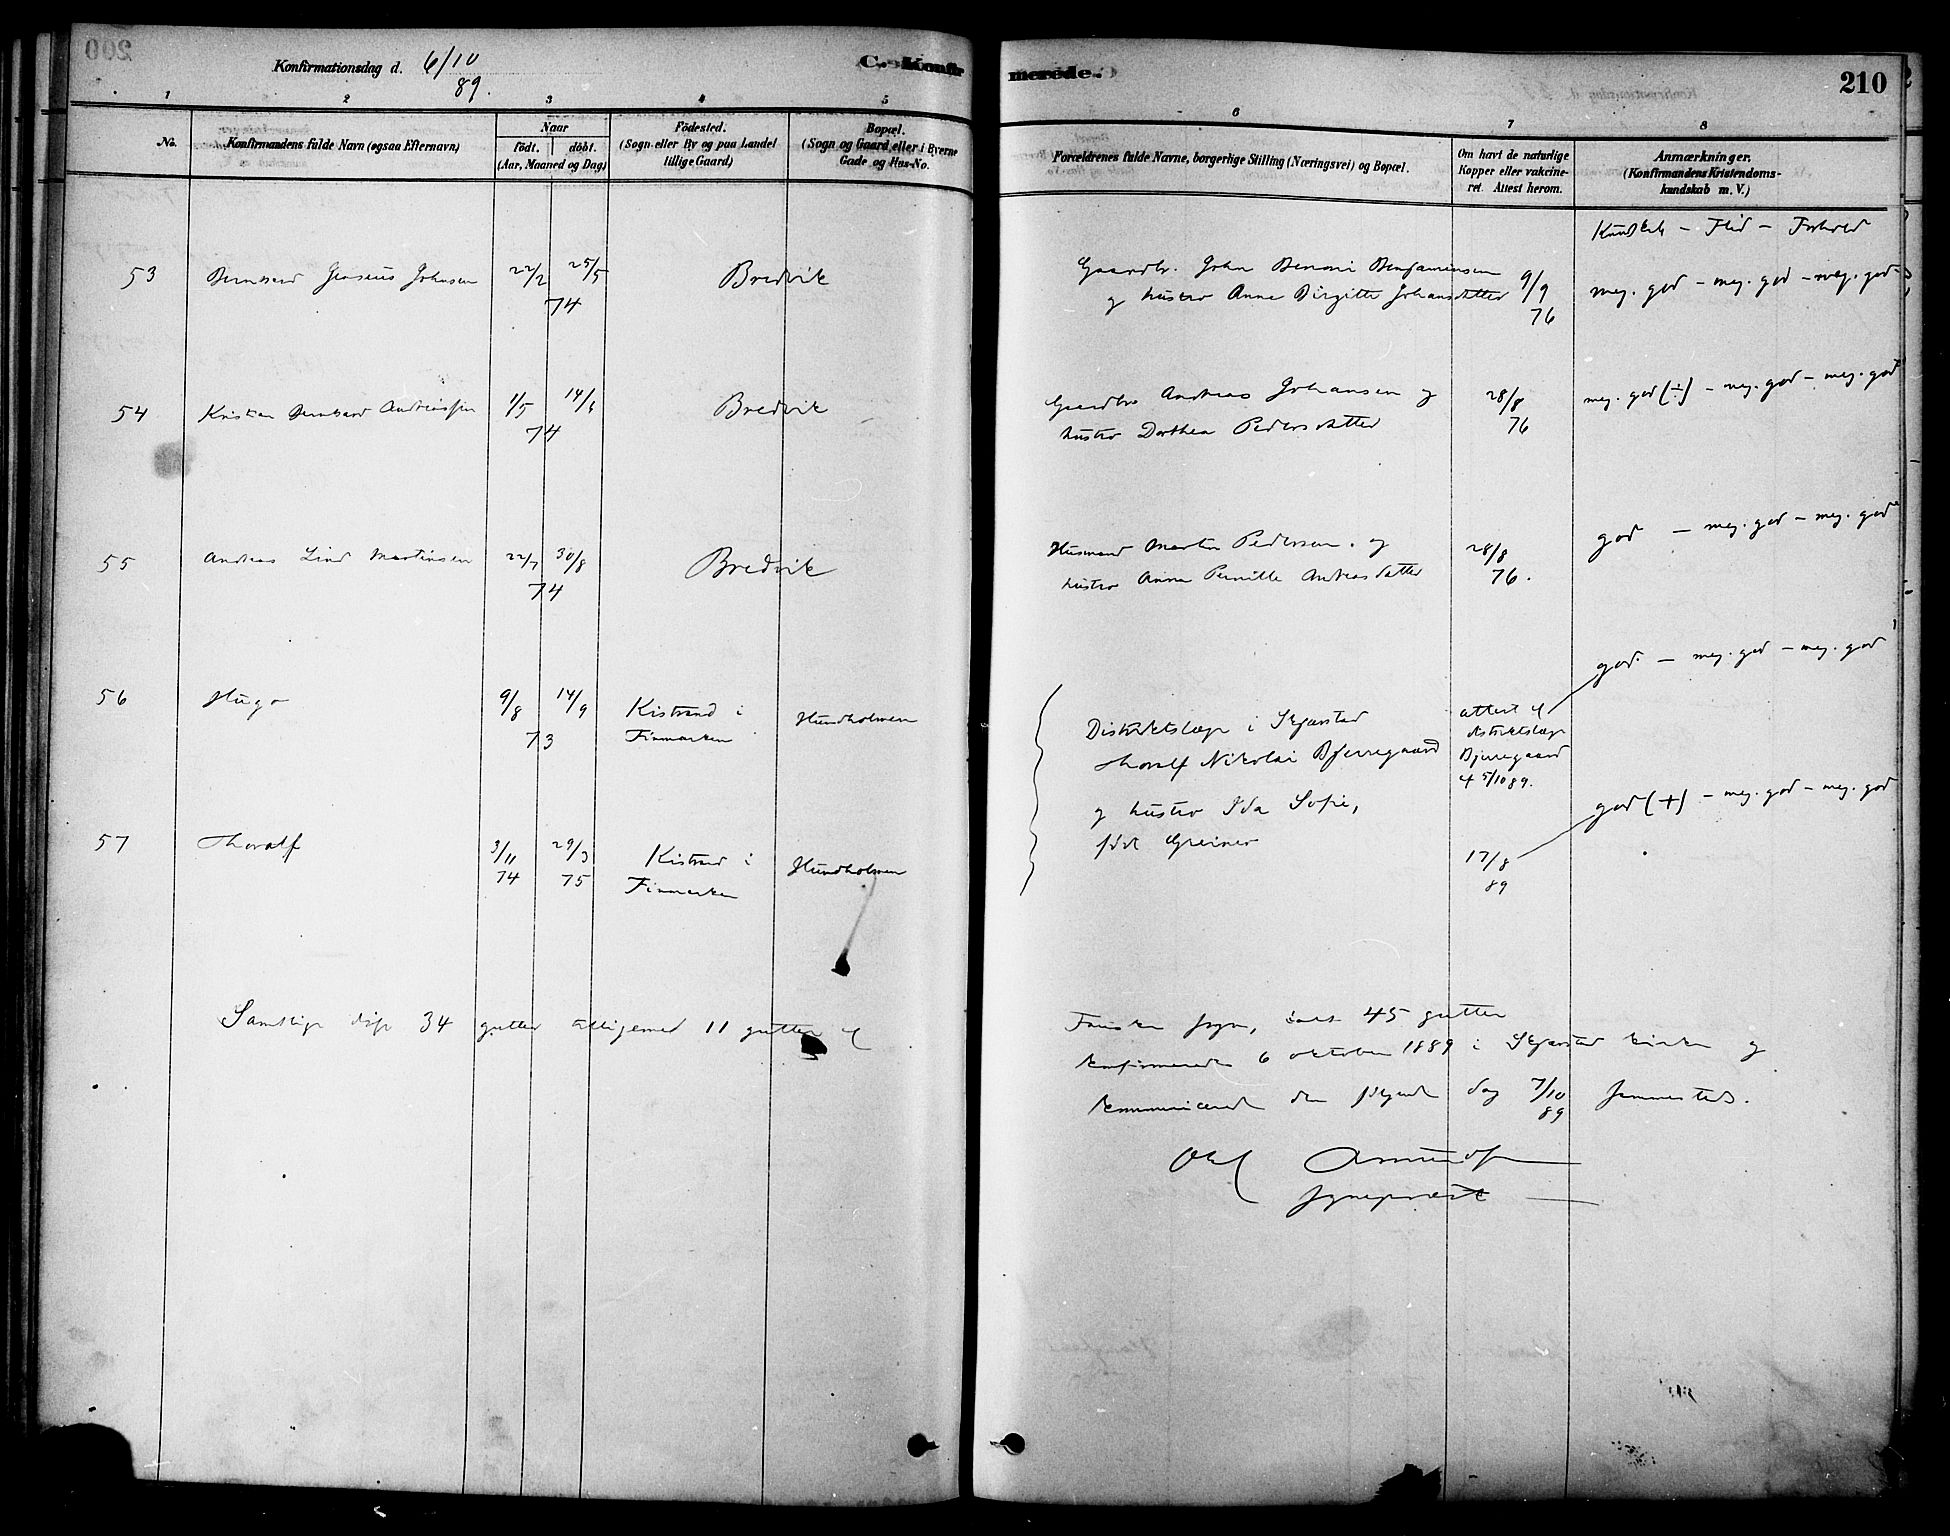 Konfirmationsdag d. 6/10 89.
C. Konfirmerede.
210
1 2 3 4 5 6 7 8
No.
Konfirmandens fulde Navn (ogsaa Efternavn)
Naar
født. døbt.
(Aar, Maaned og Dag)
Fødested.
(Sogn eller By og paa Landet
tillige Gaard)
Bopæl.
(Sogn og Gaard, eller i Byerne
Gade og Hus-No.
Forældrenes fulde Navne, borgerlige Stilling (Næringsvei) og Bopæl.
Om havt de naturlige
Kopper eller vakcine-
ret. Attest herom.
Anmærkninger.
(Konfirmandens Kristendoms-
kundskab m. V.)
Kundskab - Flid - Forhold
53 Bernhard Jensius Johnsen 22/2 25/5 74 Bredvik
Gaardbr. John Benoni Benjaminsen
og hustro Anne Birgitte Johansdatter
9/9 76
meg. god - meg. god - meg. god
54 Kristian Bernhard Andreassen 1/5 14/6 74 Bredvik
Gaardbr Andreas Johansen og
hustro Dorthea Pedersdatter
28/8 76
meg. god (÷) - meg. god - meg. god
55 Andreas Lind Martinsen 22/7 30/8 74 Bredvik
Husmand Martin Pedersen. og
hustro Anne Pernille Andreasdatter
28/8 76.
god - meg. god - meg. god
56 Hugo 9/8 14/9 73 Kistrand i
Finmarken
Hundholmen
Distriktslæge i Skjerstad
Thoralf Nikolai Bjerregaard
og hustro Ida Sofie,
født Greiner
attest af
distriktslæge
Bjerregaard
af 5/10 89.
god - meg. god - meg. god
57 Thoralf 3/11 74 29/3 75 Kistrand i
Finmarken
Hundholmen
17/8 89
god (+) - meg. god - meg. god
Samtlige disse 34 gutter tilligemed 11 gutter af
Fauske sogn, ialt 45 gutter
konfirmerede 6 oktober 1889 i Skjerstad kirke og
kommunicerede den følgende dag 7/10 89 sammesteds.
Amundsen
sogneprest